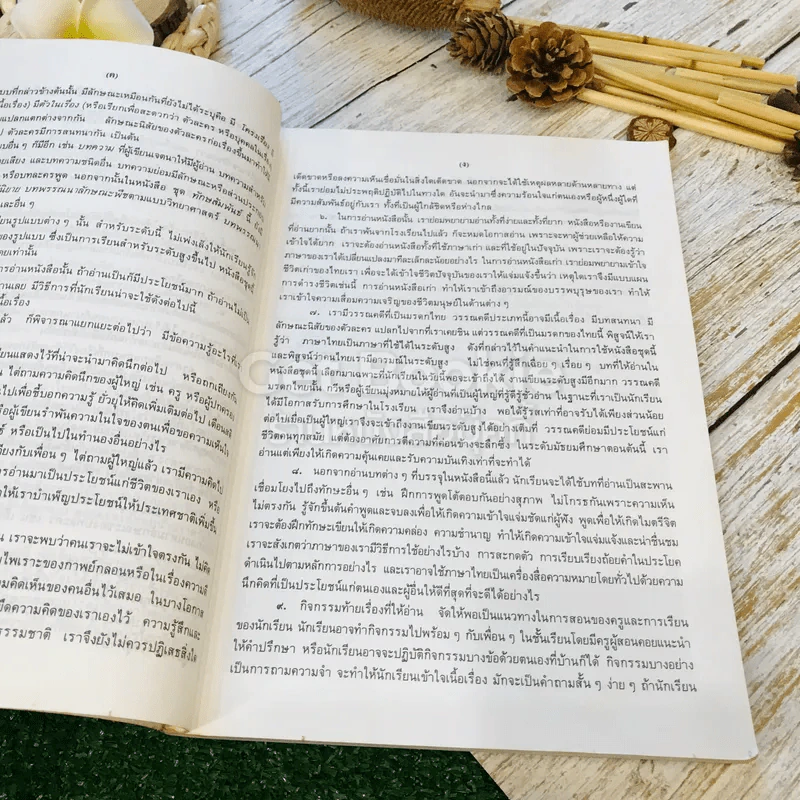 (ค)
แบบที่กล่าวข้างต้นนั้น มีลักษณะเหมือนกันที่ยังไม่ได้ระบุคือ มี โครงเรื่อง
เนื้อเรื่อง) มีตัวในเรื่อง (หรือเรียกเพื่อสะดวกว่า ตัวละคร หรือบุคคลในเรื่อง
แปลกแตกต่างจากกัน ลักษณะนิสัยของตัวละครก่อเรื่องขึ้นมา
ตัวละครมีการสนทนากัน เป็นต้น
อื่น ๆ ก็มีอีก เช่น บทความ ที่ผู้เขียนเจตนาให้มีผู้อ่าน บทความสำหรับ
และบทความชนิดอื่น บทความย่อมมีลักษณะหรือส่วนประกอบ
หรือบทละครพูด นอกจากนั้นในหนังสือ ชุด ทักษสัมพันธ์ นี้ ยัง
บทพรรณนาลักษณะพืชตามแบบวิทยาศาสตร์ บทพรรณนา
และอื่น ๆ
เรียนรูปแบบต่าง ๆ นั้น สำหรับระดับนี้ ไม่เพ่งเล็งให้นักเรียนรู้จัก
ของรูปแบบ ซึ่งเป็นการเรียนสำหรับระดับสูงขึ้นไป หนังสือชุดนี้
เท่านั้น
การอ่านหนังสือนั้น ถ้าอ่านเป็นก็มีประโยชน์มาก ถ้าอ่านไม่เป็น
เลย มีวิธีการที่นักเรียนน่าจะใช้ดังต่อไปนี้
เนื้อเรื่อง
แล้ว ก็พิจารณาแยกแยะต่อไปว่า มีข้อความรู้อะไรที่เรา
เขียนแสดงไว้ที่น่าจะนำมาคิดนึกต่อไป หรือถกเถียงกัน
ไต่ถามความคิดนึกของผู้ใหญ่ เช่น ครู หรือผู้ปกครอง
ไปเพื่อชี้บอกความรู้ ยั่วยุให้คิดเพิ่มเติมต่อไป เตือนสติ
หรือผู้เขียนรำพันความในใจของตนเพื่อขอความเห็นใจ
หรือเป็นไปในทำนองอื่นอย่างไร
เถียงกับเพื่อน ๆ ไต่ถามผู้ใหญ่แล้ว เรามีความคิดไป
การอ่านมาเป็นประโยชน์แก่ชีวิตของเราเอง หรือ
ให้เราบำเพ็ญประโยชน์ให้ประเทศชาติเพิ่มขึ้น
เราจะพบว่าคนเราจะไม่เข้าใจตรงกัน ไม่คิด
ไพเราะของกาพย์กลอนหรือในเรื่องความดี
คิดเห็นของคนอื่นไว้เสมอ ในบางโอกาส
ยึดความคิดของเราเองไว้ ความรู้สึกและ
ธรรมชาติ เราจึงยังไม่ควรปฏิเสธสิ่งใด
(ง)
เด็ดขาดหรือลงความเห็นเชื่อมั่นในสิ่งใดเด็ดขาด นอกจากจะได้ใช้เหตุผลหลายด้านหลายทาง แต่
ทั้งนี้เราย่อมไม่ประพฤติปฏิบัติไปในทางใด อันจะนำมาซึ่งความร้อนใจแก่ตนเองหรือผู้หนึ่งผู้ใดที่
มีความสัมพันธ์อยู่กับเรา ทั้งที่เป็นผู้ใกล้ชิดหรือห่างไกล
๖. ในการอ่านหนังสือนั้น เราย่อมพยายามอ่านทั้งที่ง่ายและทั้งที่ยาก หนังสือหรืองานเขียน
ที่อ่านยากนั้น ถ้าเราพ้นจากโรงเรียนไปแล้ว ก็จะหมดโอกาสอ่าน เพราะจะหาผู้ช่วยเหลือให้ความ
เข้าใจได้ยาก เราจะต้องอ่านหนังสือทั้งที่ใช้ภาษาเก่า และที่ใช้อยู่ในปัจจุบัน เพราะเราจะต้องรู้ว่า
ภาษาของเราได้เปลี่ยนแปลงมาทีละเล็กละน้อยอย่างไร ในการอ่านหนังสือเก่า เราย่อมพยายามเข้าใจ
ชีวิตเก่าของไทยเรา เพื่อจะได้เข้าใจชีวิตปัจจุบันของเราให้แจ่มแจ้งขึ้นว่า เหตุใดเราจึงมีแบบแผน
การดำรงชีวิตเช่นนี้ การอ่านหนังสือเก่า ทำให้เราเข้าถึงอารมณ์ของบรรพบุรุษของเรา ทำให้
เราเข้าใจความเสื่อมความเจริญของชีวิตมนุษย์ในด้านต่าง ๆ
๗. เรามีวรรณคดีที่เป็นมรดกไทย วรรณคดีประเภทนี้อาจมีเนื้อเรื่อง มีบทสนทนา มี
ลักษณะนิสัยของตัวละคร แปลกไปจากที่เราเคยชิน แต่วรรณคดีที่เป็นมรดกของไทยนี้ พิสูจน์ให้เรา
รู้ว่า ภาษาไทยเป็นภาษาที่ใช้ได้ในระดับสูง ดังที่กล่าวไว้ในคำแนะนำในการใช้หนังสือชุดนี้
และพิสูจน์ว่าคนไทยเรามีอารมณ์ในระดับสูง ไม่ใช่คนที่รู้สึกเฉื่อย ๆ เรื่อย ๆ บทที่ให้อ่านใน
หนังสือนี้ เลือกมาเฉพาะที่นักเรียนในวัยนี้พอจะเข้าถึงได้ งานเขียนระดับสูงมีอีกมาก วรรณคดี
มรดกไทยนั้น กวีหรือผู้เขียนมุ่งหมายให้ผู้อ่านที่เป็นผู้ใหญ่ที่รู้ดีรู้ชั่วอ่าน ในฐานะที่เราเป็นนักเรียน
ได้มีโอกาสรับการศึกษาในโรงเรียน เราจึงอ่านบ้าง พอได้รู้รสเท่าที่อาจรับได้เพียงส่วนน้อย
ต่อไปเมื่อเป็นผู้ใหญ่เราจึงจะเข้าถึงงานเขียนระดับสูงได้อย่างเต็มที่ วรรณคดีย่อมมีประโยชน์แก่
ชีวิตคนทุกสมัย แต่ต้องอาศัยการตีความที่ค่อนข้างจะลึกซึ้ง ในระดับมัธยมศึกษาตอนต้นนี้ เรา
อ่านแต่เพียงให้เกิดความคุ้นเคยและรับความบันเทิงเท่าที่จะทำได้
๘. นอกจากอ่านบทต่าง ๆ ที่บรรจุในหนังสือนี้แล้ว นักเรียนจะได้ใช้บทที่อ่านเป็นสะพาน
เชื่อมโยงไปถึงทักษะอื่น ๆ เช่น ฝึกการพูดโต้ตอบกันอย่างสุภาพ ไม่โกรธกันเพราะความเห็น
ไม่ตรงกัน รู้จักขึ้นต้นคำพูดและจบลงเพื่อให้เกิดความเข้าใจแจ่มชัดแก่ผู้ฟัง พูดเพื่อให้เกิดไมตรีจิต
เราจะต้องฝึกทักษะเขียนให้เกิดความคล่อง ความชำนาญ ทำให้เกิดความเข้าใจแจ่มแจ้งและน่าชื่นชม
เราจะสังเกตว่าภาษาของเรามีวิธีการใช้อย่างไรบ้าง การสะกดตัว การเรียบเรียงถ้อยคำในประโยค
ดำเนินไปตามหลักการอย่างไร และเราอาจใช้ภาษาไทยเป็นเครื่องสื่อความหมายโดยทั่วไปด้วยความ
นึกคิดที่เป็นประโยชน์แก่ตนเองและผู้อื่นให้ดีที่สุดที่จะดีได้อย่างไร
๙. กิจกรรมท้ายเรื่องที่ให้อ่าน จัดให้พอเป็นแนวทางในการสอนของครูและการเรียน
ของนักเรียน นักเรียนอาจทำกิจกรรมไปพร้อม ๆ กับเพื่อน ๆ ในชั้นเรียนโดยมีครูผู้สอนคอยแนะนำ
ให้คำปรึกษา หรือนักเรียนอาจจะปฏิบัติกิจกรรมบางข้อด้วยตนเองที่บ้านก็ได้ กิจกรรมบางอย่าง
เป็นการถามความจำ จะทำให้นักเรียนเข้าใจเนื้อเรื่อง มักจะเป็นคำถามสั้น ๆ ง่าย ๆ ถ้านักเรียน